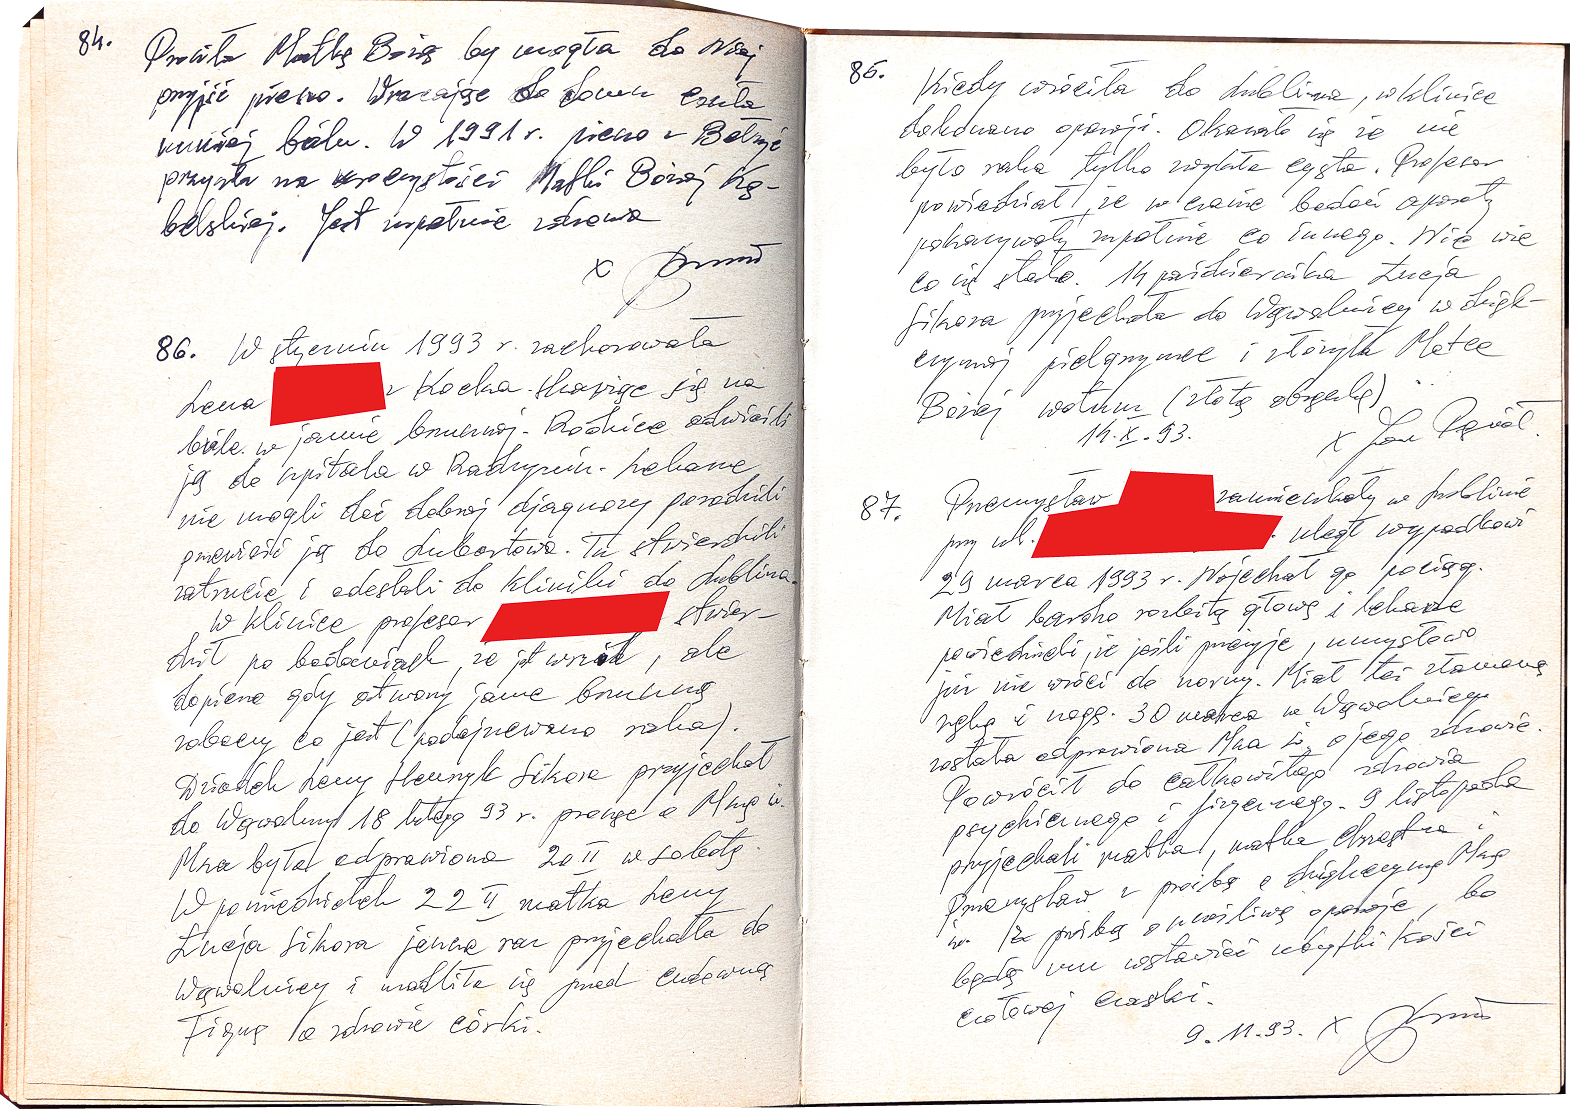 84.
Prosiła Matkę Bożą by mogła do Niej
przyjść pieszo. Wracając do domu czuła
mniej bólu. W 1991 r. pieszo z Bełżyc
przyszła na uroczystości Matki Bożej Kę-
belskiej. Jest zupełnie zdrowa
x
86. W styczniu 1993 r. zachorowała
Lena z Kocka skarżąc się na
bóle w jamie brzusznej. Rodzice odwieźli
ją do szpitala w Radzyniu. Lekarze
nie mogli dać dobrej djagnozy poradzili
przewieźć ją do Lubartowa. Tu stwierdzili
zatrucie i odesłali do kliniki do Lublina.
W klinice profesor stwier-
dził po badaniach, że jest wrzód, ale
dopiero gdy otworzy jamę brzuszną
zobaczy co jest (podejrzewano raka).
Dziadek Leny Henryk Sikora przyjechał
do Wąwolnicy 18 lutego 93 r. prosząc o Mszę św.
Msza była odprawiona 20 II w sobotę.
W poniedziałek 22 II matka Leny
Łucja Sikora jeszcze raz przyjechała do
Wąwolnicy i modliła się przed cudowną
Figurą o zdrowie córki.
85.
Kiedy wróciła do Lublina, w klinice
dokonano operacji. Okazało się że nie
było raka tylko zwykła cysta. Profesor
powiedział, że w czasie badań aparaty
pokazywały zupełnie co innego. Nie wie
co się stało. 14 października Łucja
Sikora przyjechała do Wąwolnicy w dzięk-
czynnej pielgrzymce i złożyła Matce
Bożej wotum (złotą obrączkę)
14.X.93. x Jan Pęzioł.
87. Przemysław zamieszkały w Lublinie
przy ul. uległ wypadkowi
29 marca 1993 r. Najechał go pociąg.
Miał bardzo rozbitą głowę i lekarze
powiedzieli, że jeśli przeżyje, umysłowo
już nie wróci do normy. Miał też złamaną
rękę i nogę. 30 marca w Wąwolnicy
została odprawiona Msza św. o jego zdrowie.
Powrócił do całkowitego zdrowia
psychicznego i fizycznego. 9 listopada
przyjechali matka, matka chrzestna i
Przemysław z prośbą o dziękczynną Mszę
św. i z prośbą o szczęśliwą operację, bo
będą mu wstawiać ubytki kości
czołowej czaszki.
9.11.93. x